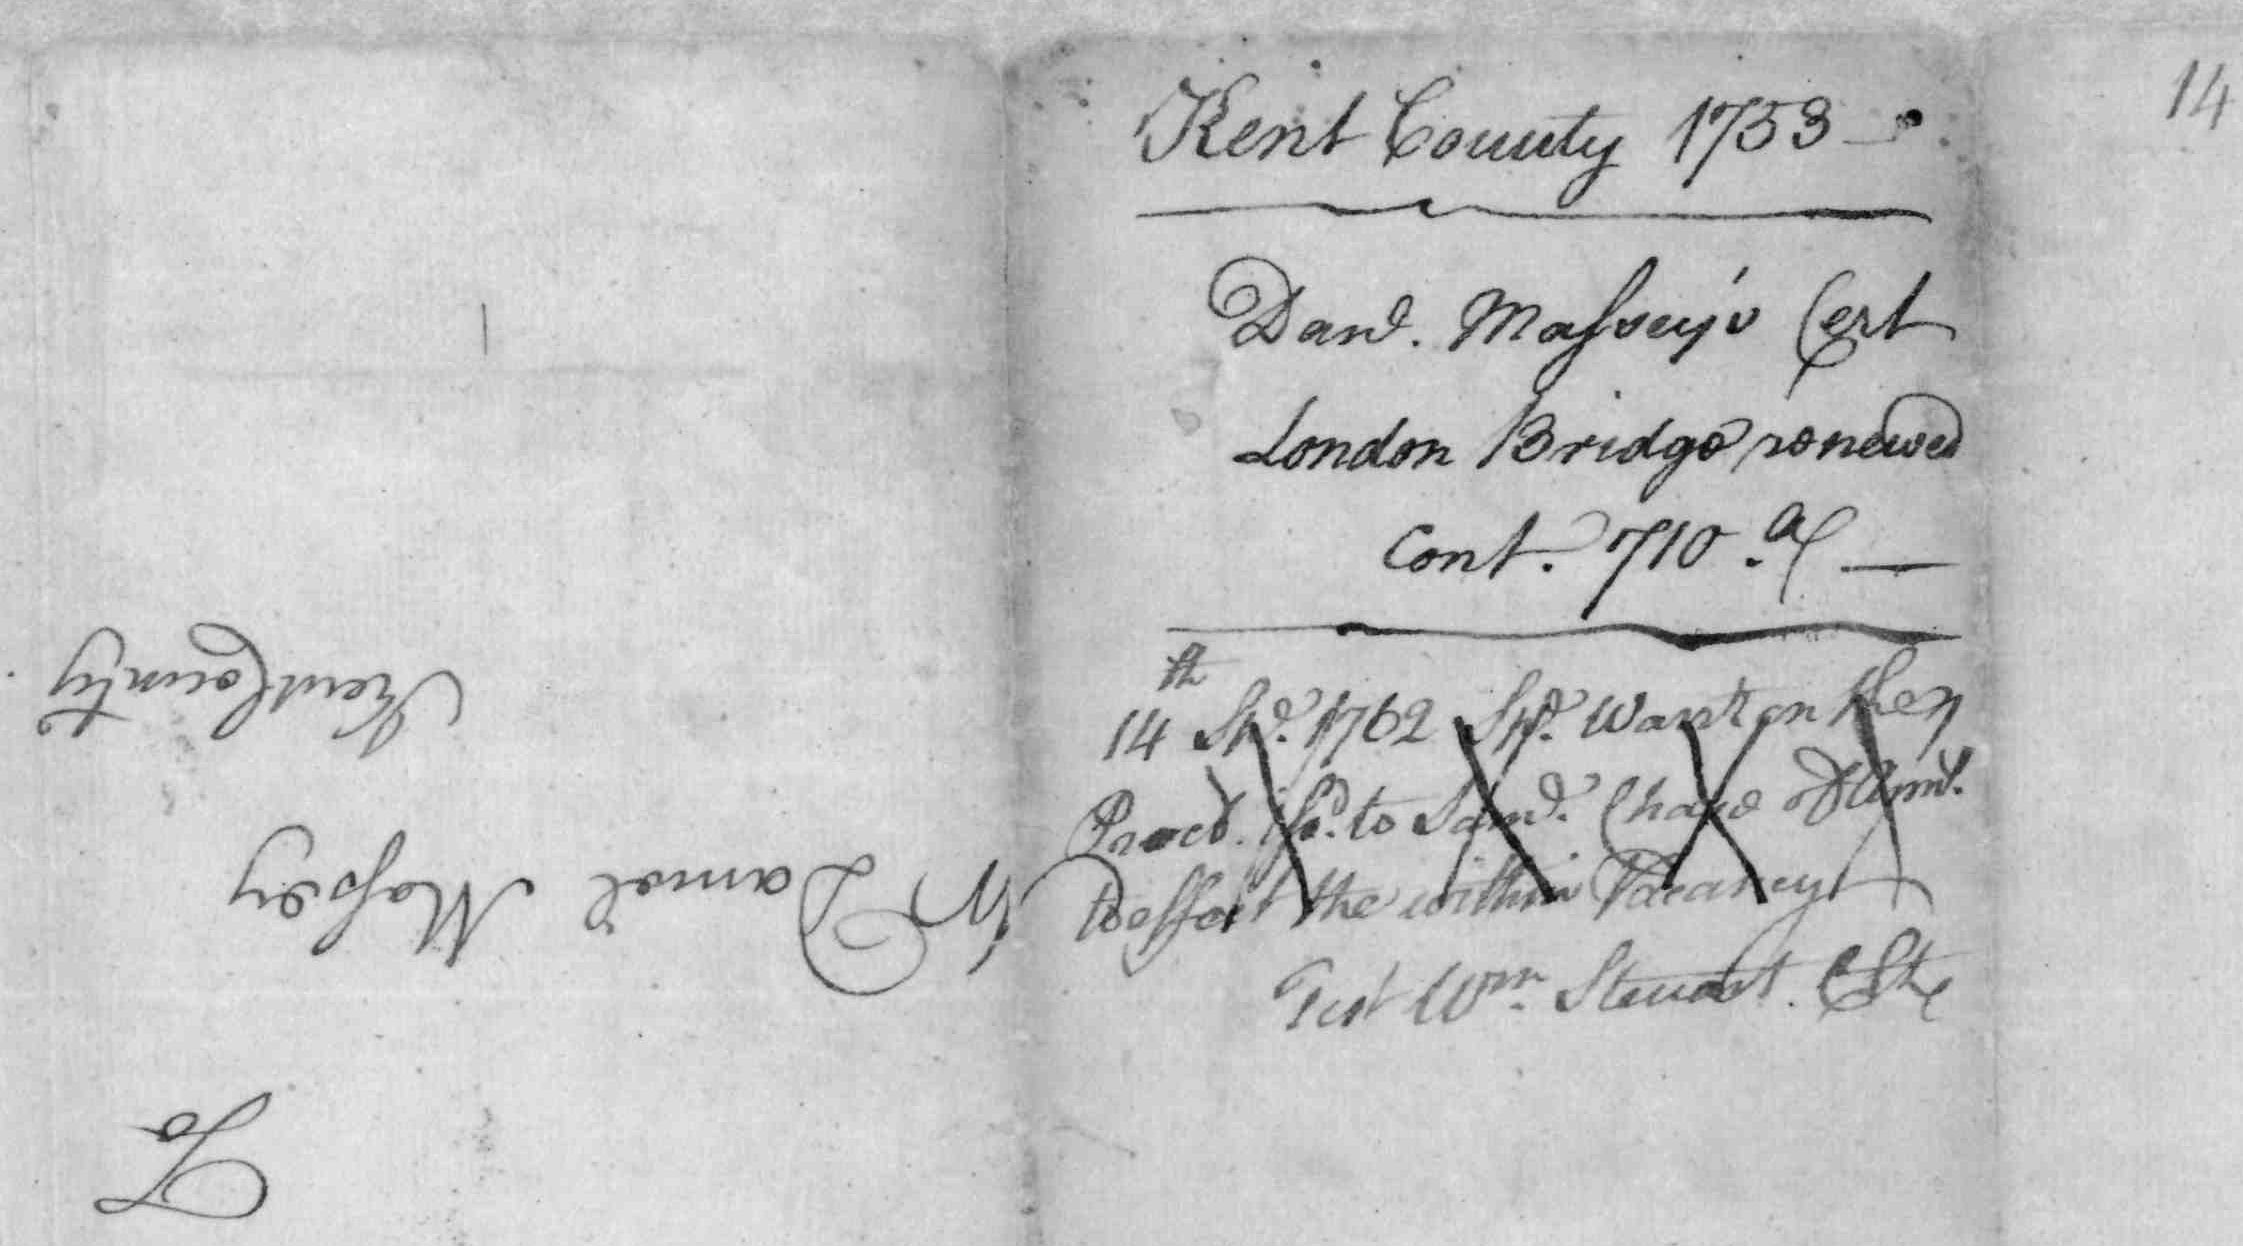 14
Kent County 1753
Danl. Massey's Cert
London Bridge renewed
Cont. 710. a
14th Sepr. 1762 Spl. Wart on the
Procl. to Saml. Chapo
to effect the within Vacancy
Test Wm. Steuart. C
To
Mr Daniel Massey
Kent County